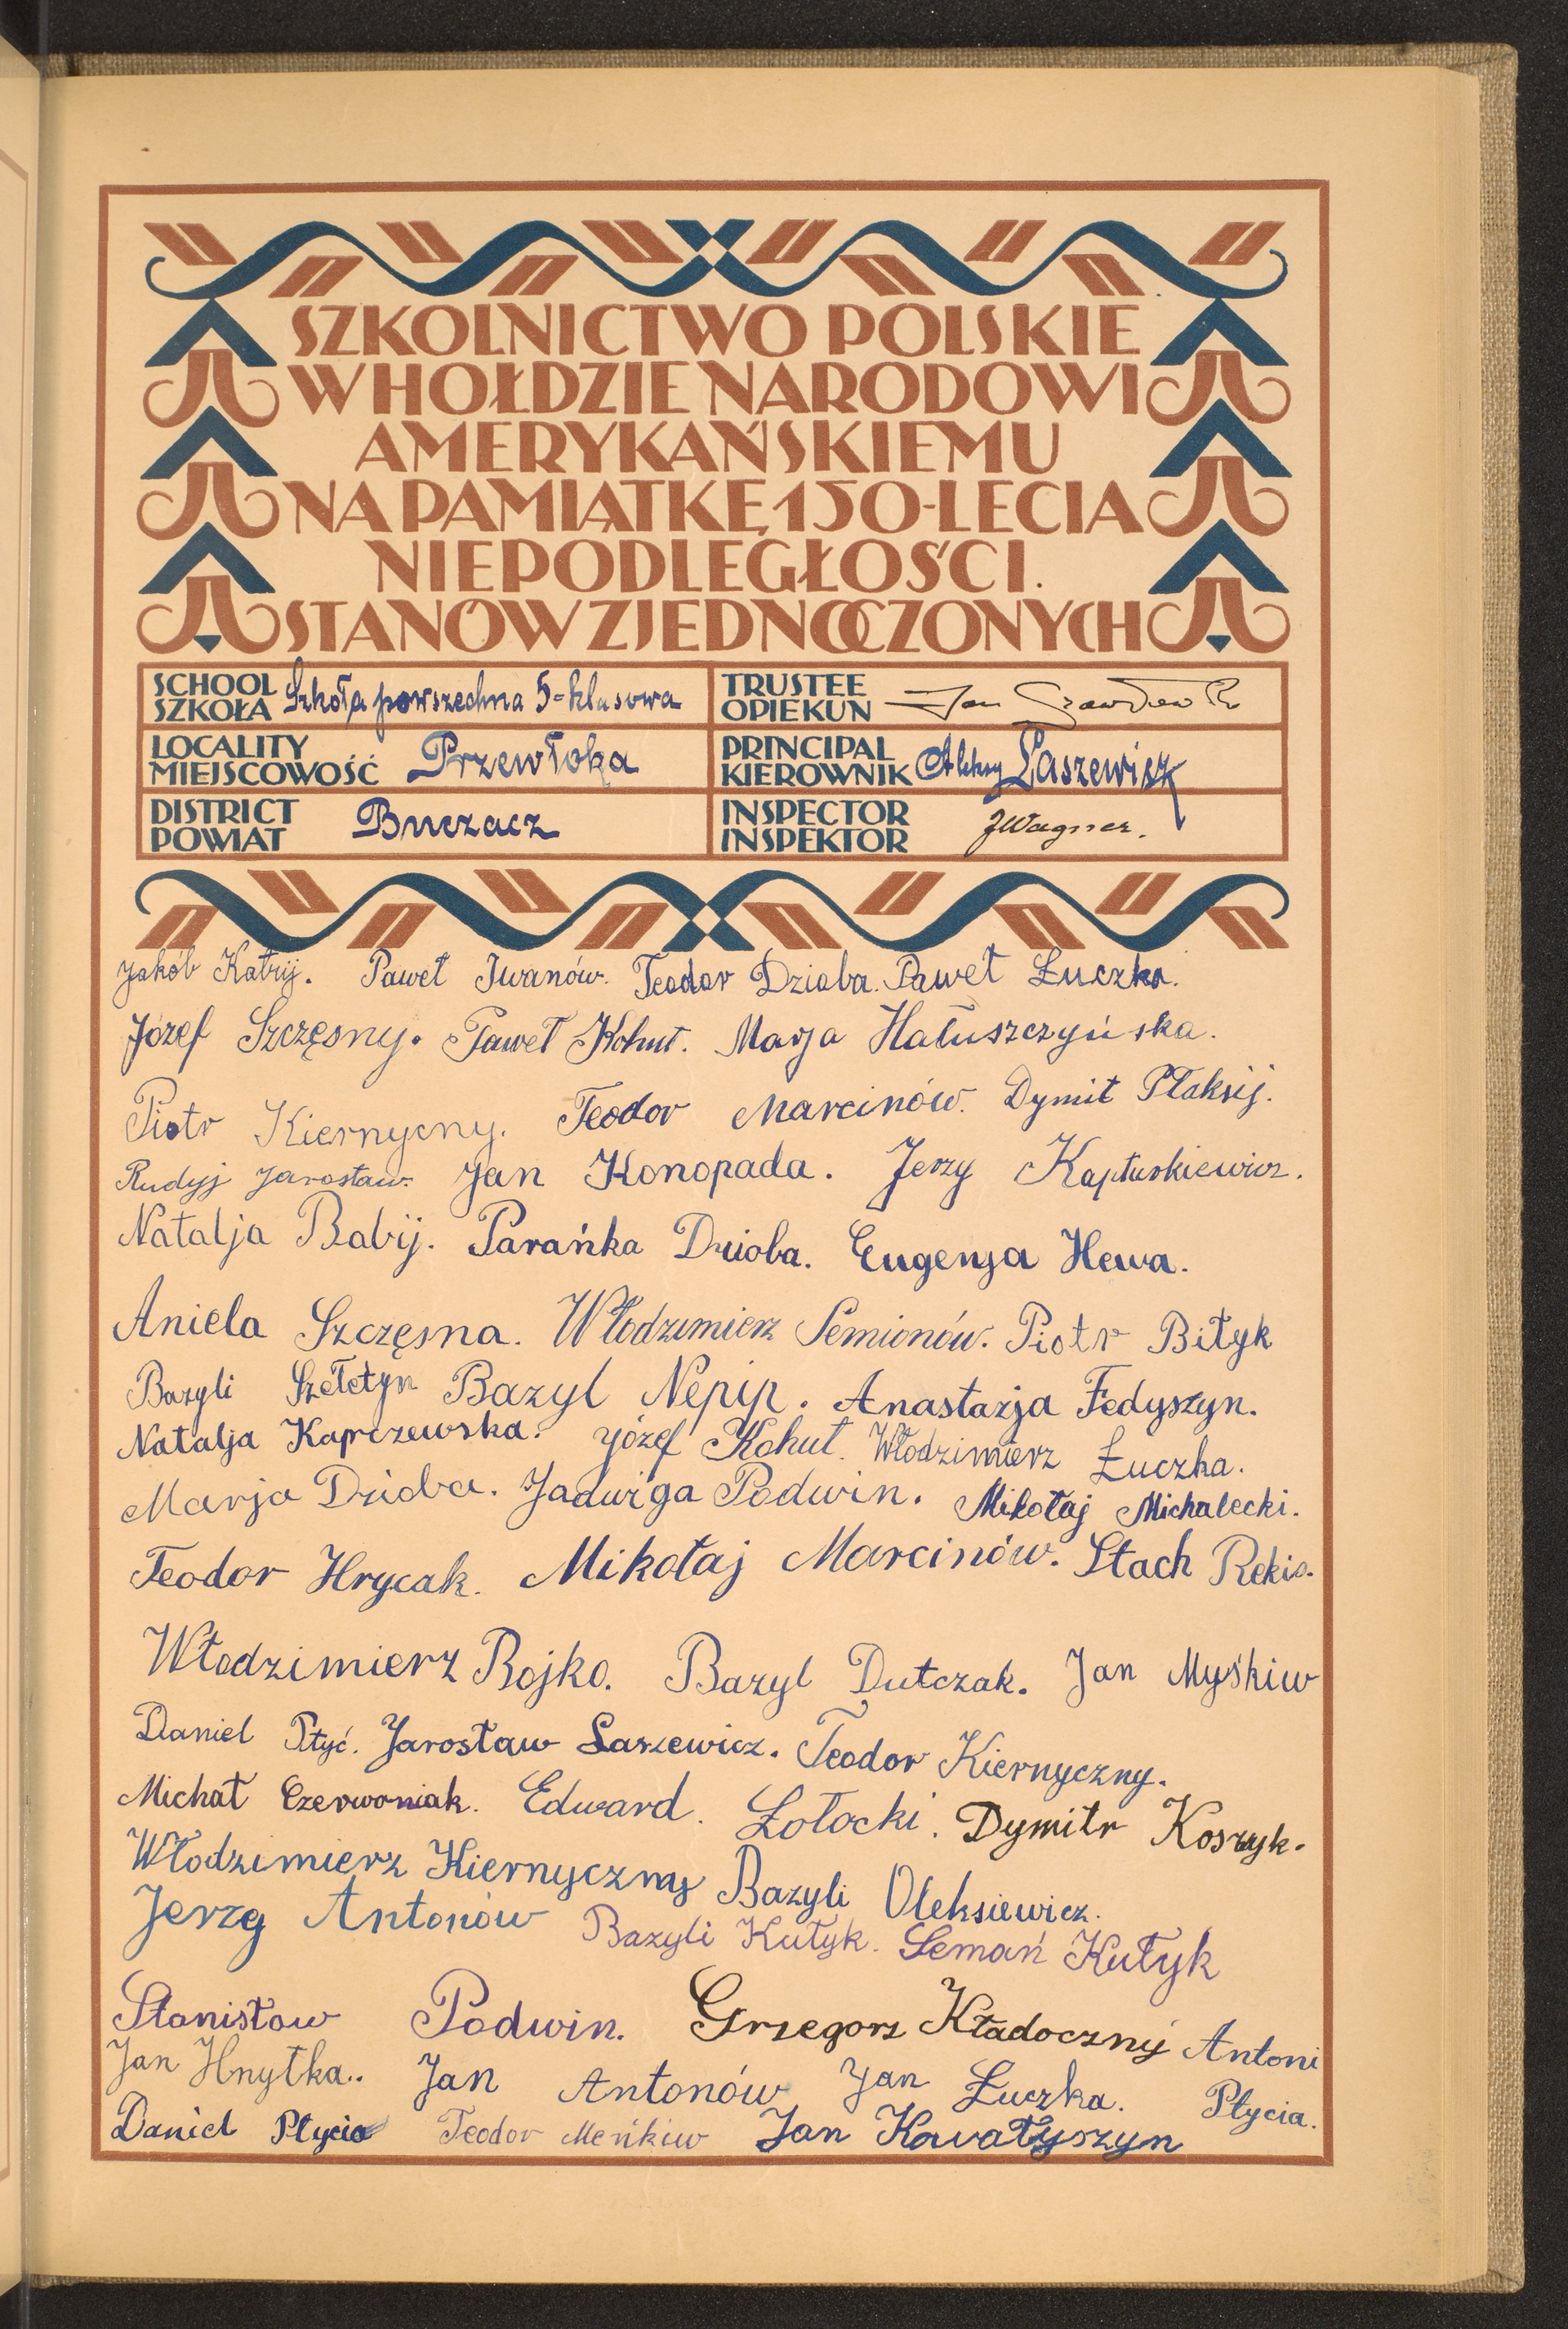 SZKOLNICTWO POLSKIE
W HOŁDZIE NARODOWI
AMERYKAŃSKIEMU
NA PAMIĄTKĘ 150-LECIA
NIEPODLEGŁOŚCI
STANÓW ZJEDNOCZONYCH
SCHOOL SZKOŁA Szkoła powszechna 5-klasowa
TRUSTEE OPIEKUN Jan
LOCALITY MIEJSCOWOŚĆ Przewłoka
PRINCIPAL KIEROWNIK Aleksy Łaszewicz
DISTRICT POWIAT Buczacz
INSPECTOR INSPEKTOR JWagner.
Jakób Katrij. Paweł Iwanów. Teodor Dzioba. Paweł Łuczka.
Józef Szczęsny. Paweł Kohut. Marja Hałuszczyńska.
Piotr Kiernycny. Teodor Marcinów. Dymit Płaksij.
Rudyj Jarosław. Jan Konopada. Jerzy Kapturkiewicz.
Natalja Babij. Parańka Dzioba. Eugenja Hewa.
Aniela Szczęsna. Włodzimierz Semionów. Piotr Bityk
Bazyli Szełetyn Bazyl Nepip. Anastazja Fedyszyn.
Natalja Kapczewska. Józef Kohut. Włodzimierz Łuczka.
Marja Dzioba. Jadwiga Podwin. Mikołaj Michalecki.
Teodor Hrycak. Mikołaj Marcinów. Stach Rekis.
Włodzimierz Bojko. Bazyl Dutczak. Jan Myśkiw
Daniel Ptyć. Jarosław Łaszewicz. Teodor Kiernyczny.
Michał Czerwoniak. Edward. Łotocki. Dymitr Koszyk.
Włodzimierz Kiernyczny Bazyli Oleksiewicz.
Jerzy Antonów Bazyli Kutyk. Semań Kutyk
Stanisław Podwin. Grzegorz Kładoczny Antoni
Jan Hnytka.. Jan Antonów Jan Łuczka. Ptycia.
Daniel Ptycia Teodor Meńkiw Jan Kowałyszyn